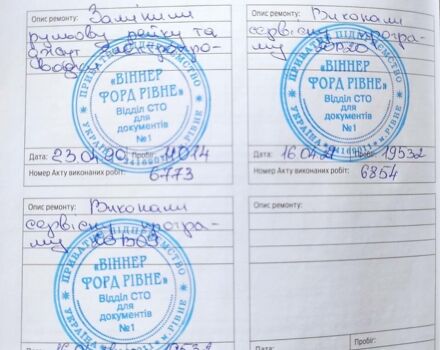 Опис ремонту: Замінили
рульову рейку та
Дата: Пробіг: 11014
Номер Акту виконаних робіт: 6773
ПРИВАТНЕ ПІДПРИЄМСТВО
«ВІННЕР
ФОРД РІВНЕ»
Відділ СТО
для
документів
№1
УКРАЇНА м.РІВНЕ
Опис ремонту: Виконали
сервісну програ-
му
Дата: 16.04.21 Пробіг: 19532
Номер Акту виконаних робіт: 6854
ПРИВАТНЕ ПІДПРИЄМСТВО
«ВІННЕР
ФОРД РІВНЕ»
Відділ СТО
для
документів
№1
УКРАЇНА м.РІВНЕ
Опис ремонту: Виконали
сервісну програ-
му
Дата:
ПРИВАТНЕ ПІДПРИЄМСТВО
«ВІННЕР
ФОРД РІВНЕ»
Відділ СТО
для
документів
№1
УКРАЇНА м.РІВНЕ
Опис ремонту:
Дата: Пробіг: